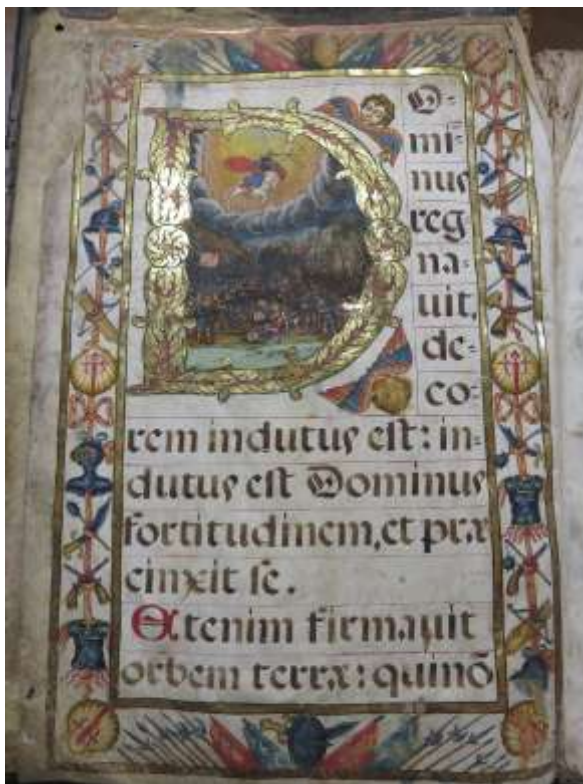 DO-
mi-
nus
reg
na-
uit,
de-
co-
rem indutus est: in-
dutus est Dominus
fortitudinem, et præ
cinxit se.
Etenim firmauit
orbem terræ: qui nō